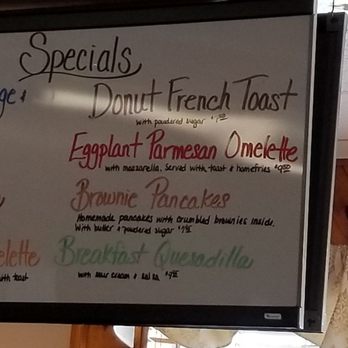 Specials
ge &
Donut French Toast
with powdered sugar
Eggplant Parmesan Omelette
with mozzarella. Served with toast & homefries
Brownie Pancakes
Homemade pancakes with crumbled brownies inside.
With butter & powdered sugar
elette
Breakfast Quesadilla
with toast
with sour cream & salsa